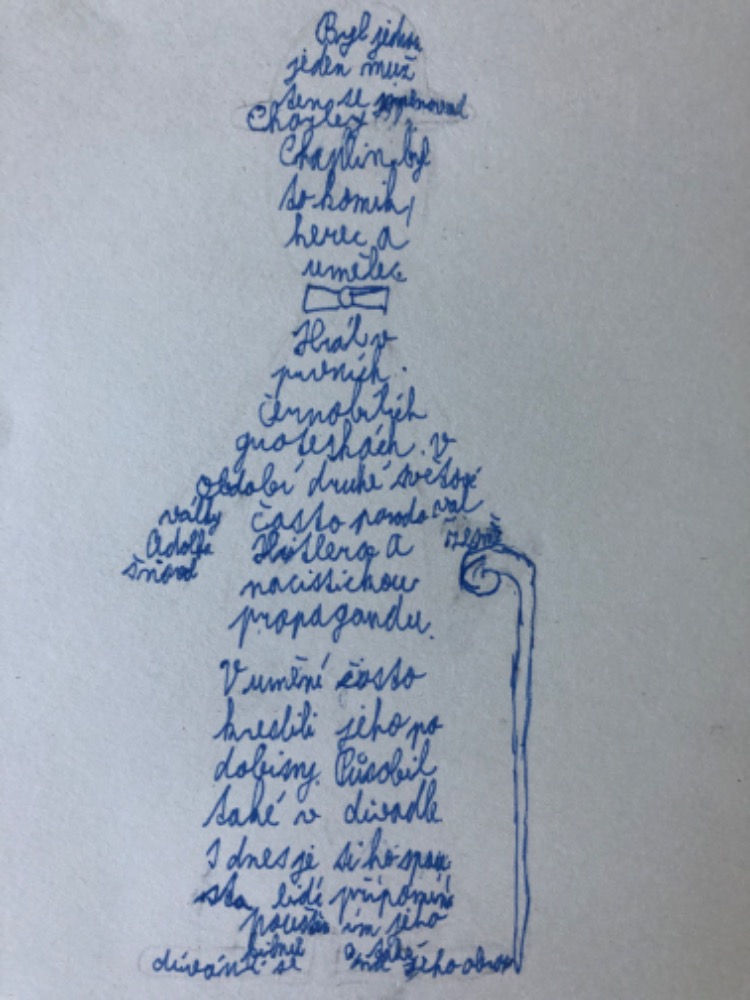 Byl jednou
jeden muž
ten se jmenoval
Charley
Chaplin, byl
to komik,
herec a
umělec
Hrál v
prvních
černobílých
groteskách. V
období druhé světové
války často parodoval
Adolfa Hitlera a
nacistickou
propagandu.
V umění často
kreslili jeho po
dobizny. Působil
také v divadle
I dnes je si ho spou
sta lidí připomíná
jeho
dívání se jeho obraz